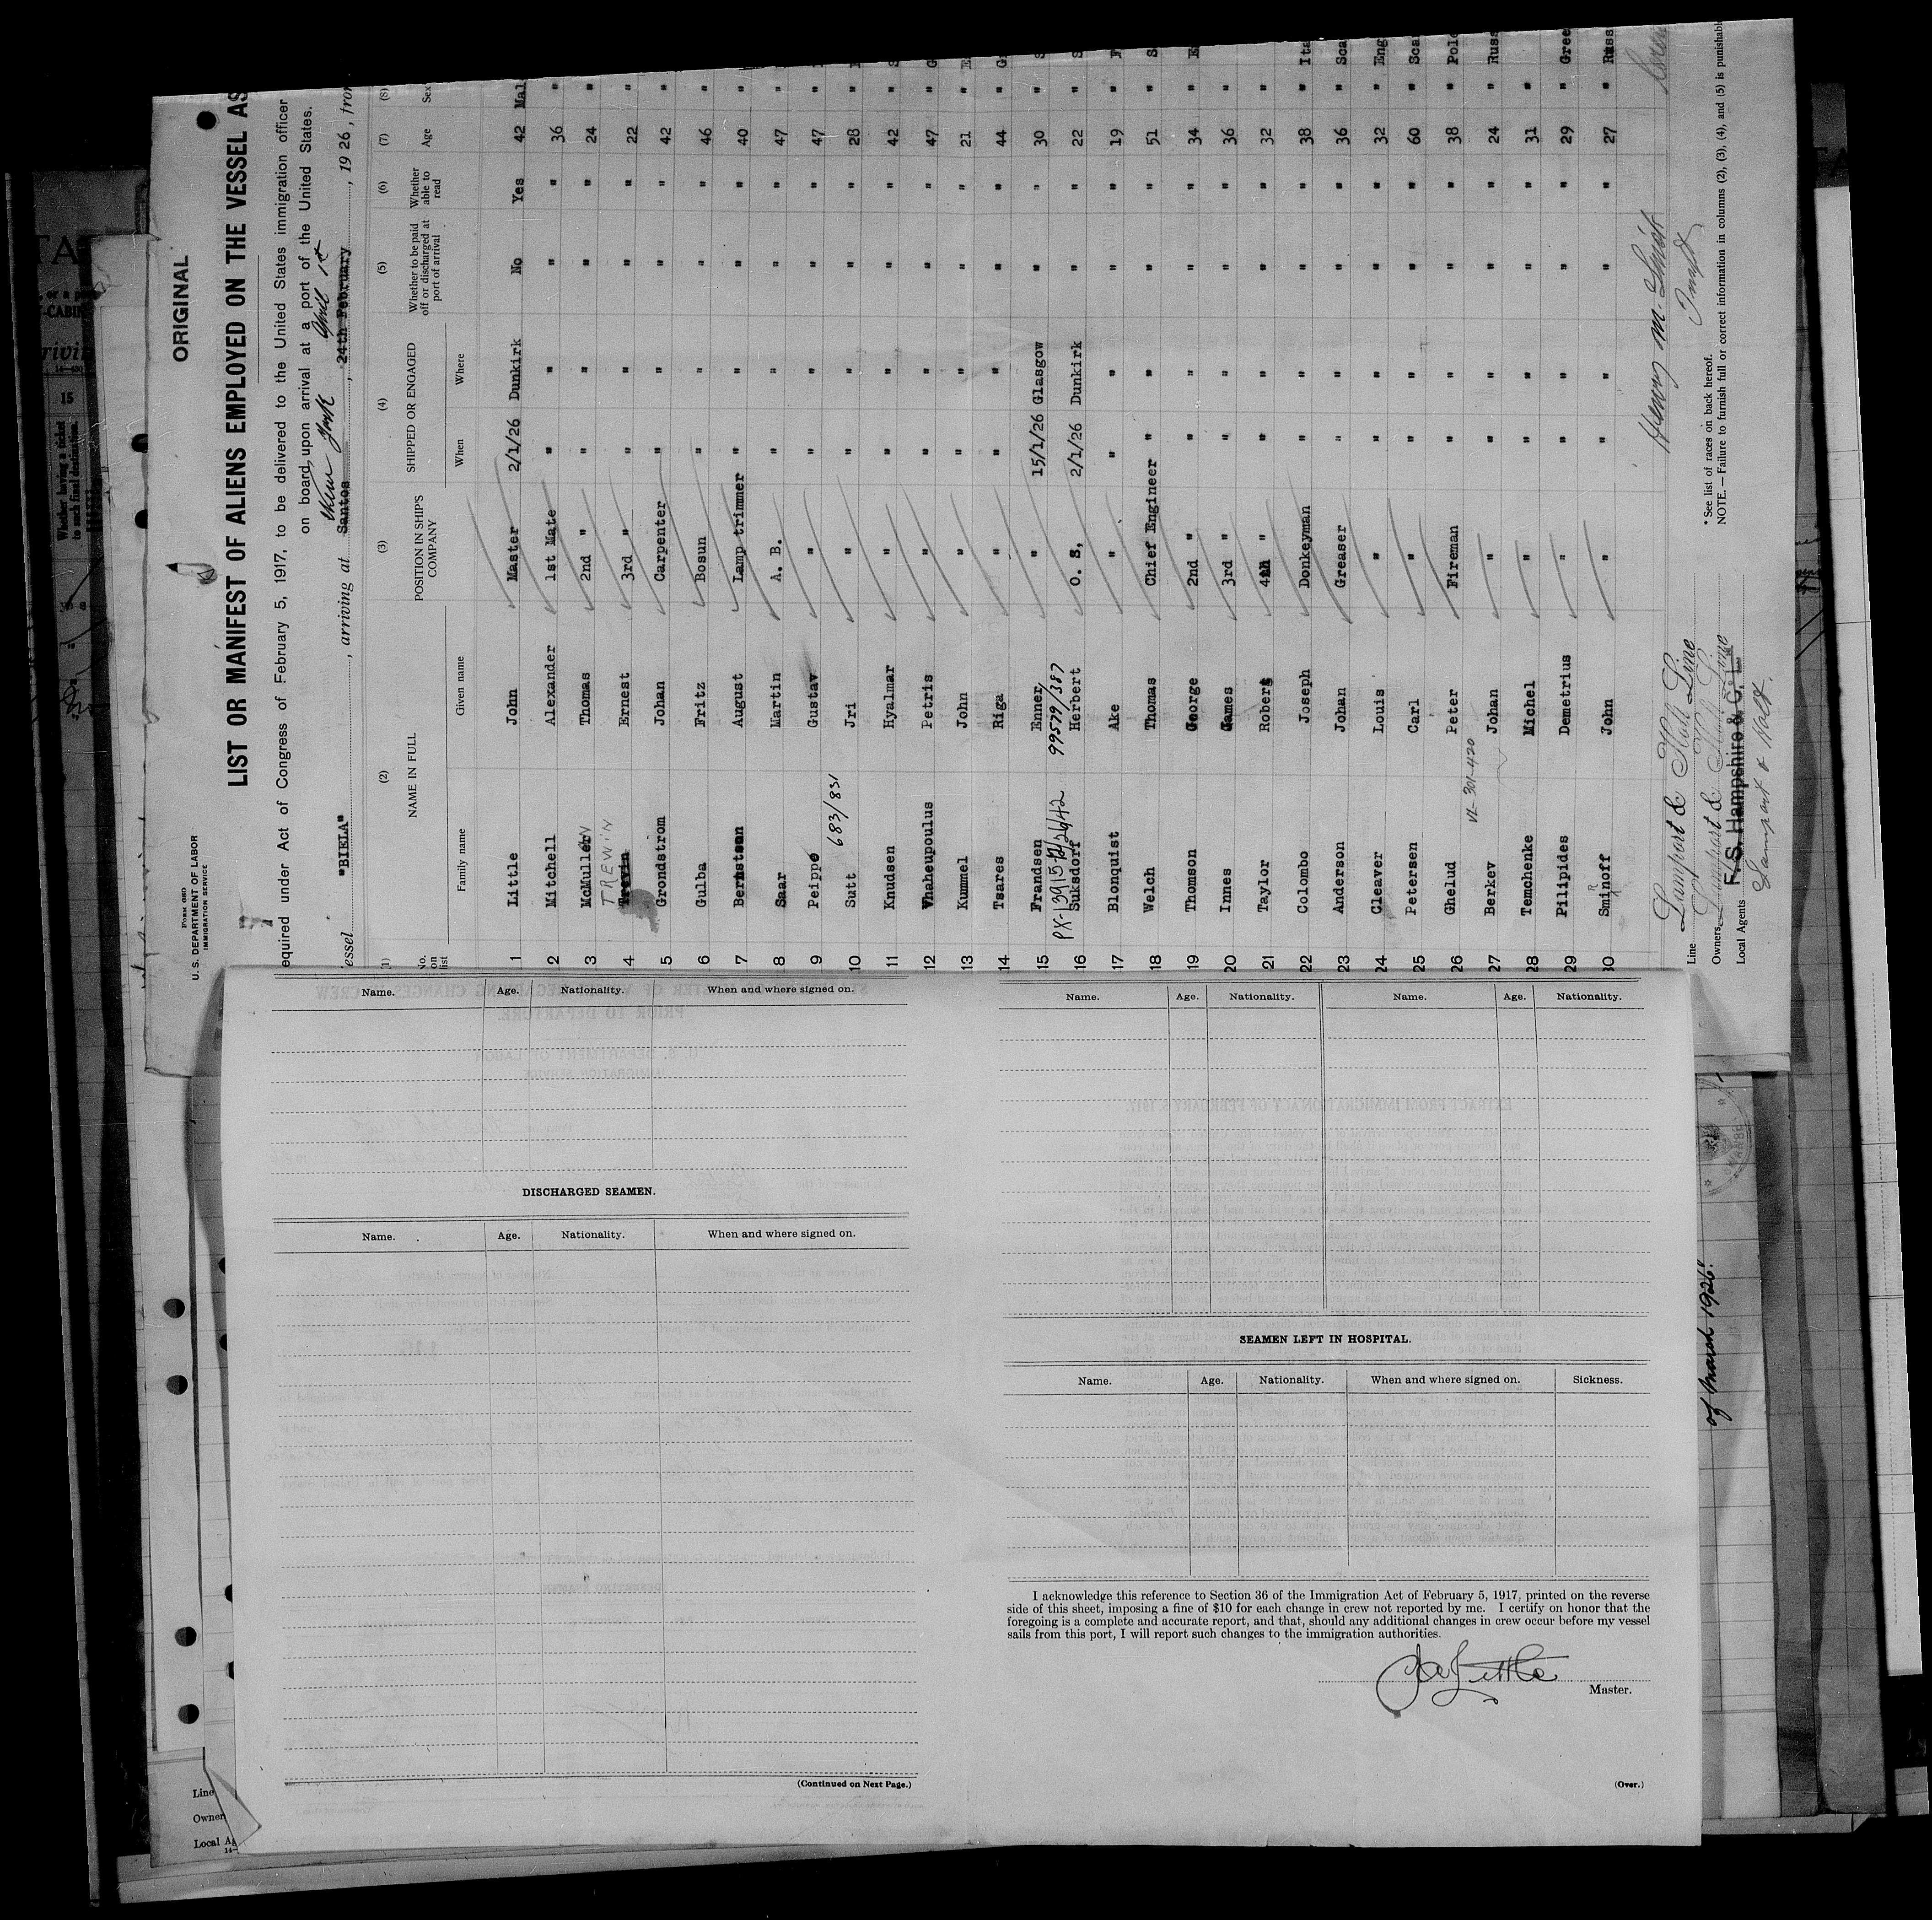 ORIGINAL
FORM 680
U. S. DEPARTMENT OF LABOR
IMMIGRATION SERVICE
LIST OR MANIFEST OF ALIENS EMPLOYED ON THE VESSEL AS
equired under Act of Congress of February 5, 1917, to be delivered to the United States immigration officer
on board upon arrival at a port of the United States.
New York April 1st
essel "BIELA", arriving at Santos, 24th February, 1926, from
(1) (2) (3) (4) (5) (6) (7) (8)
No. on list NAME IN FULL POSITION IN SHIPS COMPANY SHIPPED OR ENGAGED Whether to be paid off or discharged at port of arrival Whether able to read Age Sex
Family name Given name When Where
1 Little John Master 2/1/26 Dunkirk No Yes 42 Mal
2 Mitchell Alexander 1st Mate " " " " 36 "
3 McMullen Thomas 2nd " " " " " 24 "
TREWIN
4 Trevin Ernest 3rd " " " " " 22 "
5 Grondstrom Johan Carpenter " " " " 42 "
6 Gulba Fritz Bosun " " " " 46 "
7 Berntsen August Lamp trimmer " " " " 40 "
8 Saar Martin A. B. " " " " 47 "
9 Peippo Gustav " " " " " 47 "
683/831
10 Sutt Jri " " " " " 28 "
11 Knudsen Hyalmar " " " " " 42 "
12 Vhaheupoulus Petris " " " " " 47 "
13 Kummel John " " " " " 21 "
14 Tsares Riga " " " " " 44 "
15 Frandsen Enner " 15/1/26 Glasgow " " 30 "
99579/387
16 Suksdorf Herbert O. S. 2/1/26 Dunkirk " " 22 "
17 Blonquist Ake " " " " " 19 "
18 Welch Thomas Chief Engineer " " " " 51 "
19 Thomson George 2nd " " " " " 34 "
20 Innes James 3rd " " " " " 36 "
21 Taylor Robert 4th " " " " " 32 "
22 Colombo Joseph Donkeyman " " " " 38 " Ita
23 Anderson Johan Greaser " " " " 36 " Sca
24 Cleaver Louis " " " " " 32 " Eng
25 Petersen Carl " " " " " 60 " Sca
26 Ghelud Peter Fireman " " " " 38 " Pol
VL-301-420
27 Berkev Johan " " " " " 24 " Russ
28 Temchenke Michel " " " " " 31 "
29 Pilipides Demetrius " " " " " 29 " Gree
30 Smirnoff John " " " " " 27 " Russ
Line Lamport & Holt Line
Owners Lamport & Holt Line
Local Agents F. S. Hampshire & Co. Ltd
Lamport & Holt.
* See list of races on back hereof.
NOTE.—Failure to furnish full or correct information in columns (2), (3), (4), and (5) is punishabl
Name. Age. Nationality. When and where signed on.
DISCHARGED SEAMEN.
Name. Age. Nationality. When and where signed on.
(Continued on Next Page.)
Name. Age. Nationality. Name. Age. Nationality.
SEAMEN LEFT IN HOSPITAL.
Name. Age. Nationality. When and where signed on. Sickness.
I acknowledge this reference to Section 36 of the Immigration Act of February 5, 1917, printed on the reverse
side of this sheet, imposing a fine of $10 for each change in crew not reported by me. I certify on honor that the
foregoing is a complete and accurate report, and that, should any additional changes in crew occur before my vessel
sails from this port, I will report such changes to the immigration authorities.
Little
Master.
(Over.)
of March 1926.
15
Whether having a ticket
to such final destination.
Line
Owner
Local Ag